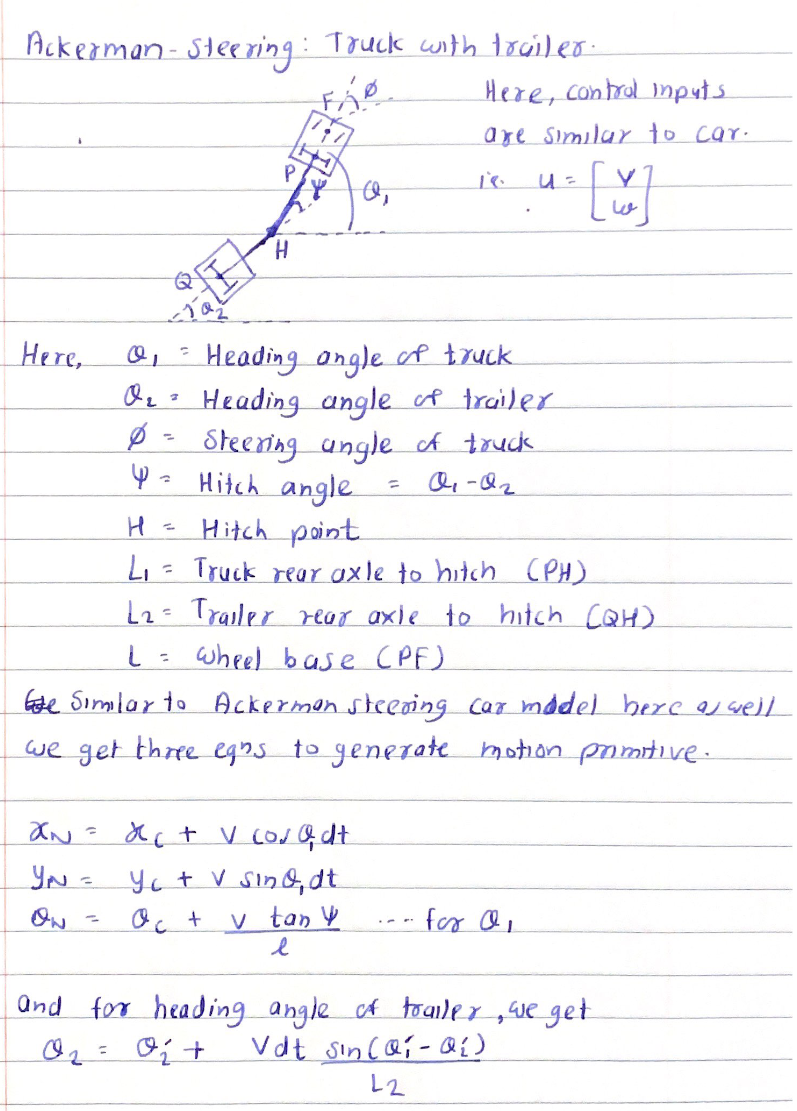 Ackerman-steering: Truck with trailer.
F ø
Here, control inputs
are similar to car.
P ψ θ₁
i.e. u = [v
ω]
H
Q
θ₂
Here, θ₁ = Heading angle of truck
θ₂ = Heading angle of trailer
ø = Steering angle of truck
ψ = Hitch angle = θ₁-θ₂
H = Hitch point
L₁ = Truck rear axle to hitch (PH)
L₂ = Trailer rear axle to hitch (QH)
L = Wheel base (PF)
Similar to Ackerman steering car model here as well
we get three eqns to generate motion primitive.
x_N = x_C + V cosθ₁dt
y_N = y_C + V sinθ₁dt
θ_N = θ_C + V tan ψ / l ---- for θ₁
and for heading angle of trailer, we get
θ₂ = θ₂' + Vdt sin(θ₁'-θ₂') / L₂